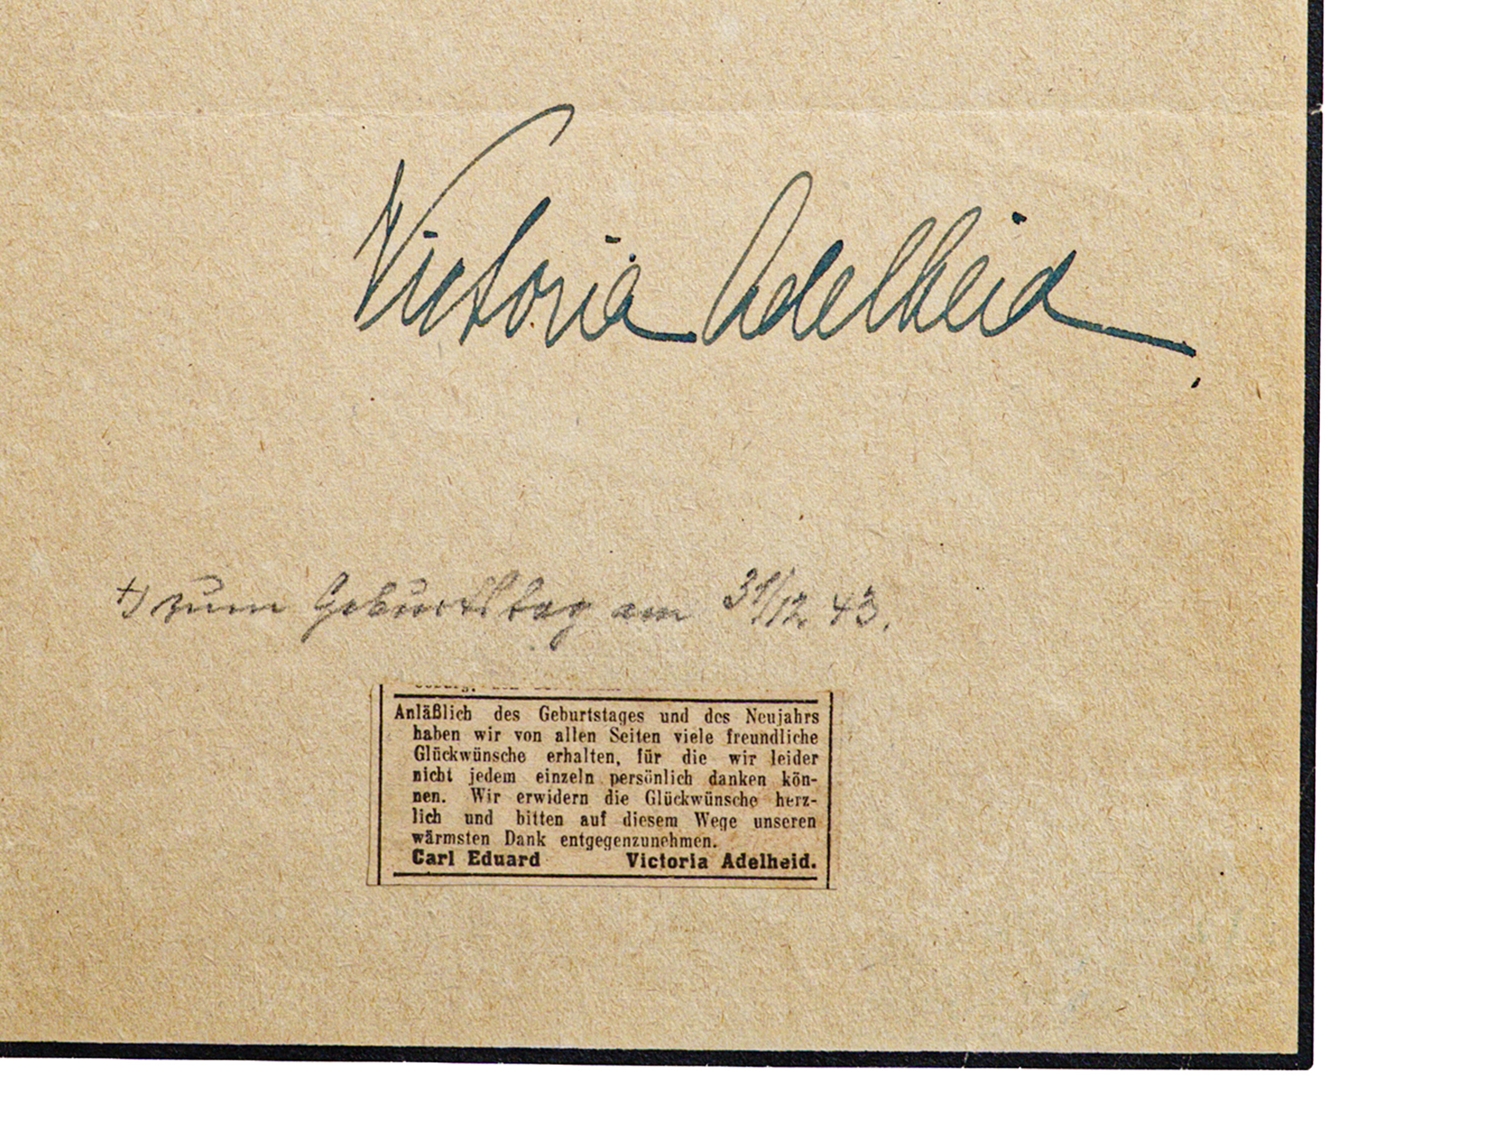 Victoria Adelheid
+) zum Geburtstag am 31/12 43.
Anläßlich des Geburtstages und des Neujahrs
haben wir von allen Seiten viele freundliche
Glückwünsche erhalten, für die wir leider
nicht jedem einzeln persönlich danken kön-
nen. Wir erwidern die Glückwünsche herz-
lich und bitten auf diesem Wege unseren
wärmsten Dank entgegenzunehmen.
Carl Eduard Victoria Adelheid.